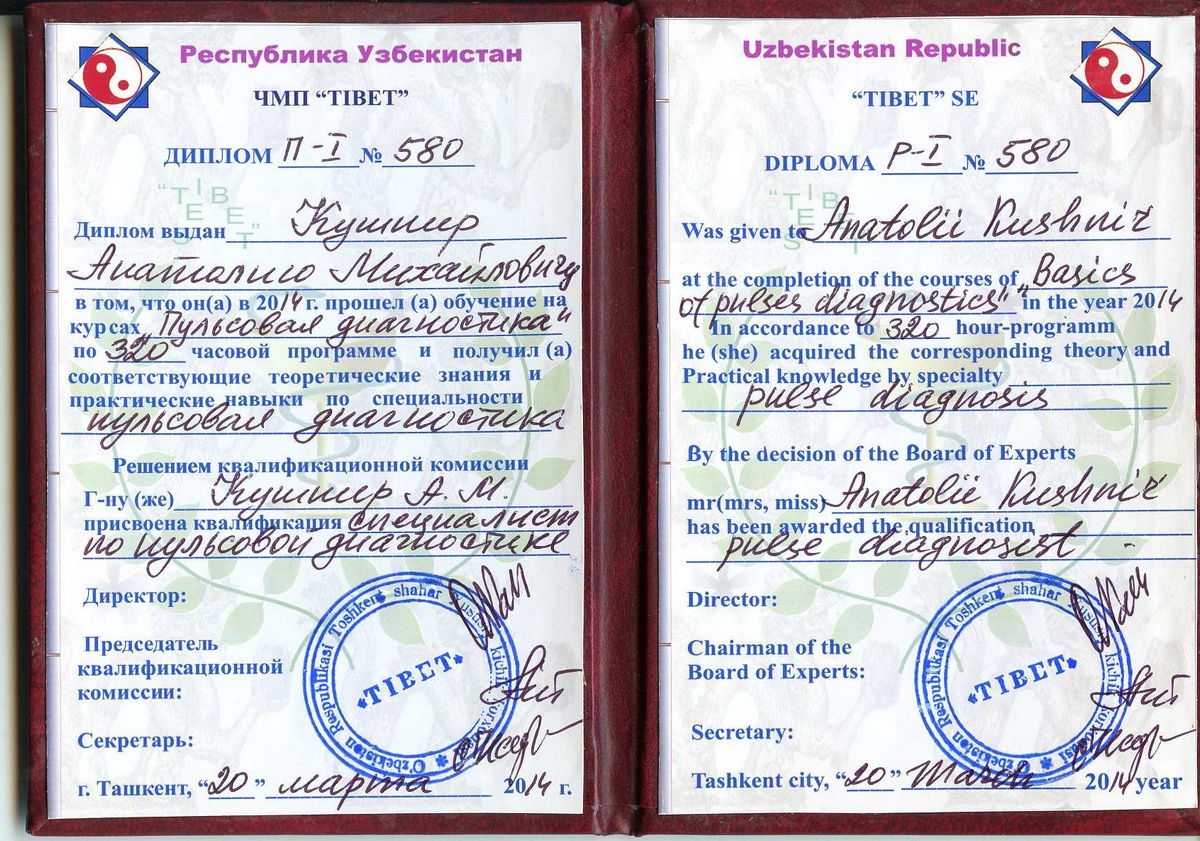 Республика Узбекистан
ЧМП “TIBET”
ДИПЛОМ П-I № 580
“TIBET”
Диплом выдан Кушнир
Анатолию Михайловичу
в том, что он(а) в 2014 г. прошел (а) обучение на
курсах „Пульсовая диагностика“
по 320 часовой программе и получил (а)
соответствующие теоретические знания и
практические навыки по специальности
пульсовая диагностика
Решением квалификационной комиссии
Г-ну (же) Кушнир А. М.
присвоена квалификация специалист
по пульсовой диагностике
Директор:
Председатель
квалификационной
комиссии:
Секретарь:
г. Ташкент, “20” марта 2014 г.
O'zbekiston Respublikasi Toshkent shahar
«TIBET»
Uzbekistan Republic
“TIBET” SE
DIPLOMA P-I № 580
Was given to Anatolii Kushnir
at the completion of the courses of „Basics
of pulses diagnostics“ in the year 2014
In accordance to 320 hour-programm
he (she) acquired the corresponding theory and
Practical knowledge by specialty
pulse diagnosis
By the decision of the Board of Experts
mr(mrs, miss) Anatolii Kushnir
has been awarded the qualification
pulse diagnosist -
Director:
Chairman of the
Board of Experts:
Secretary:
Tashkent city, “20” March 2014 year
O'zbekiston Respublikasi Toshkent shahar
«TIBET»